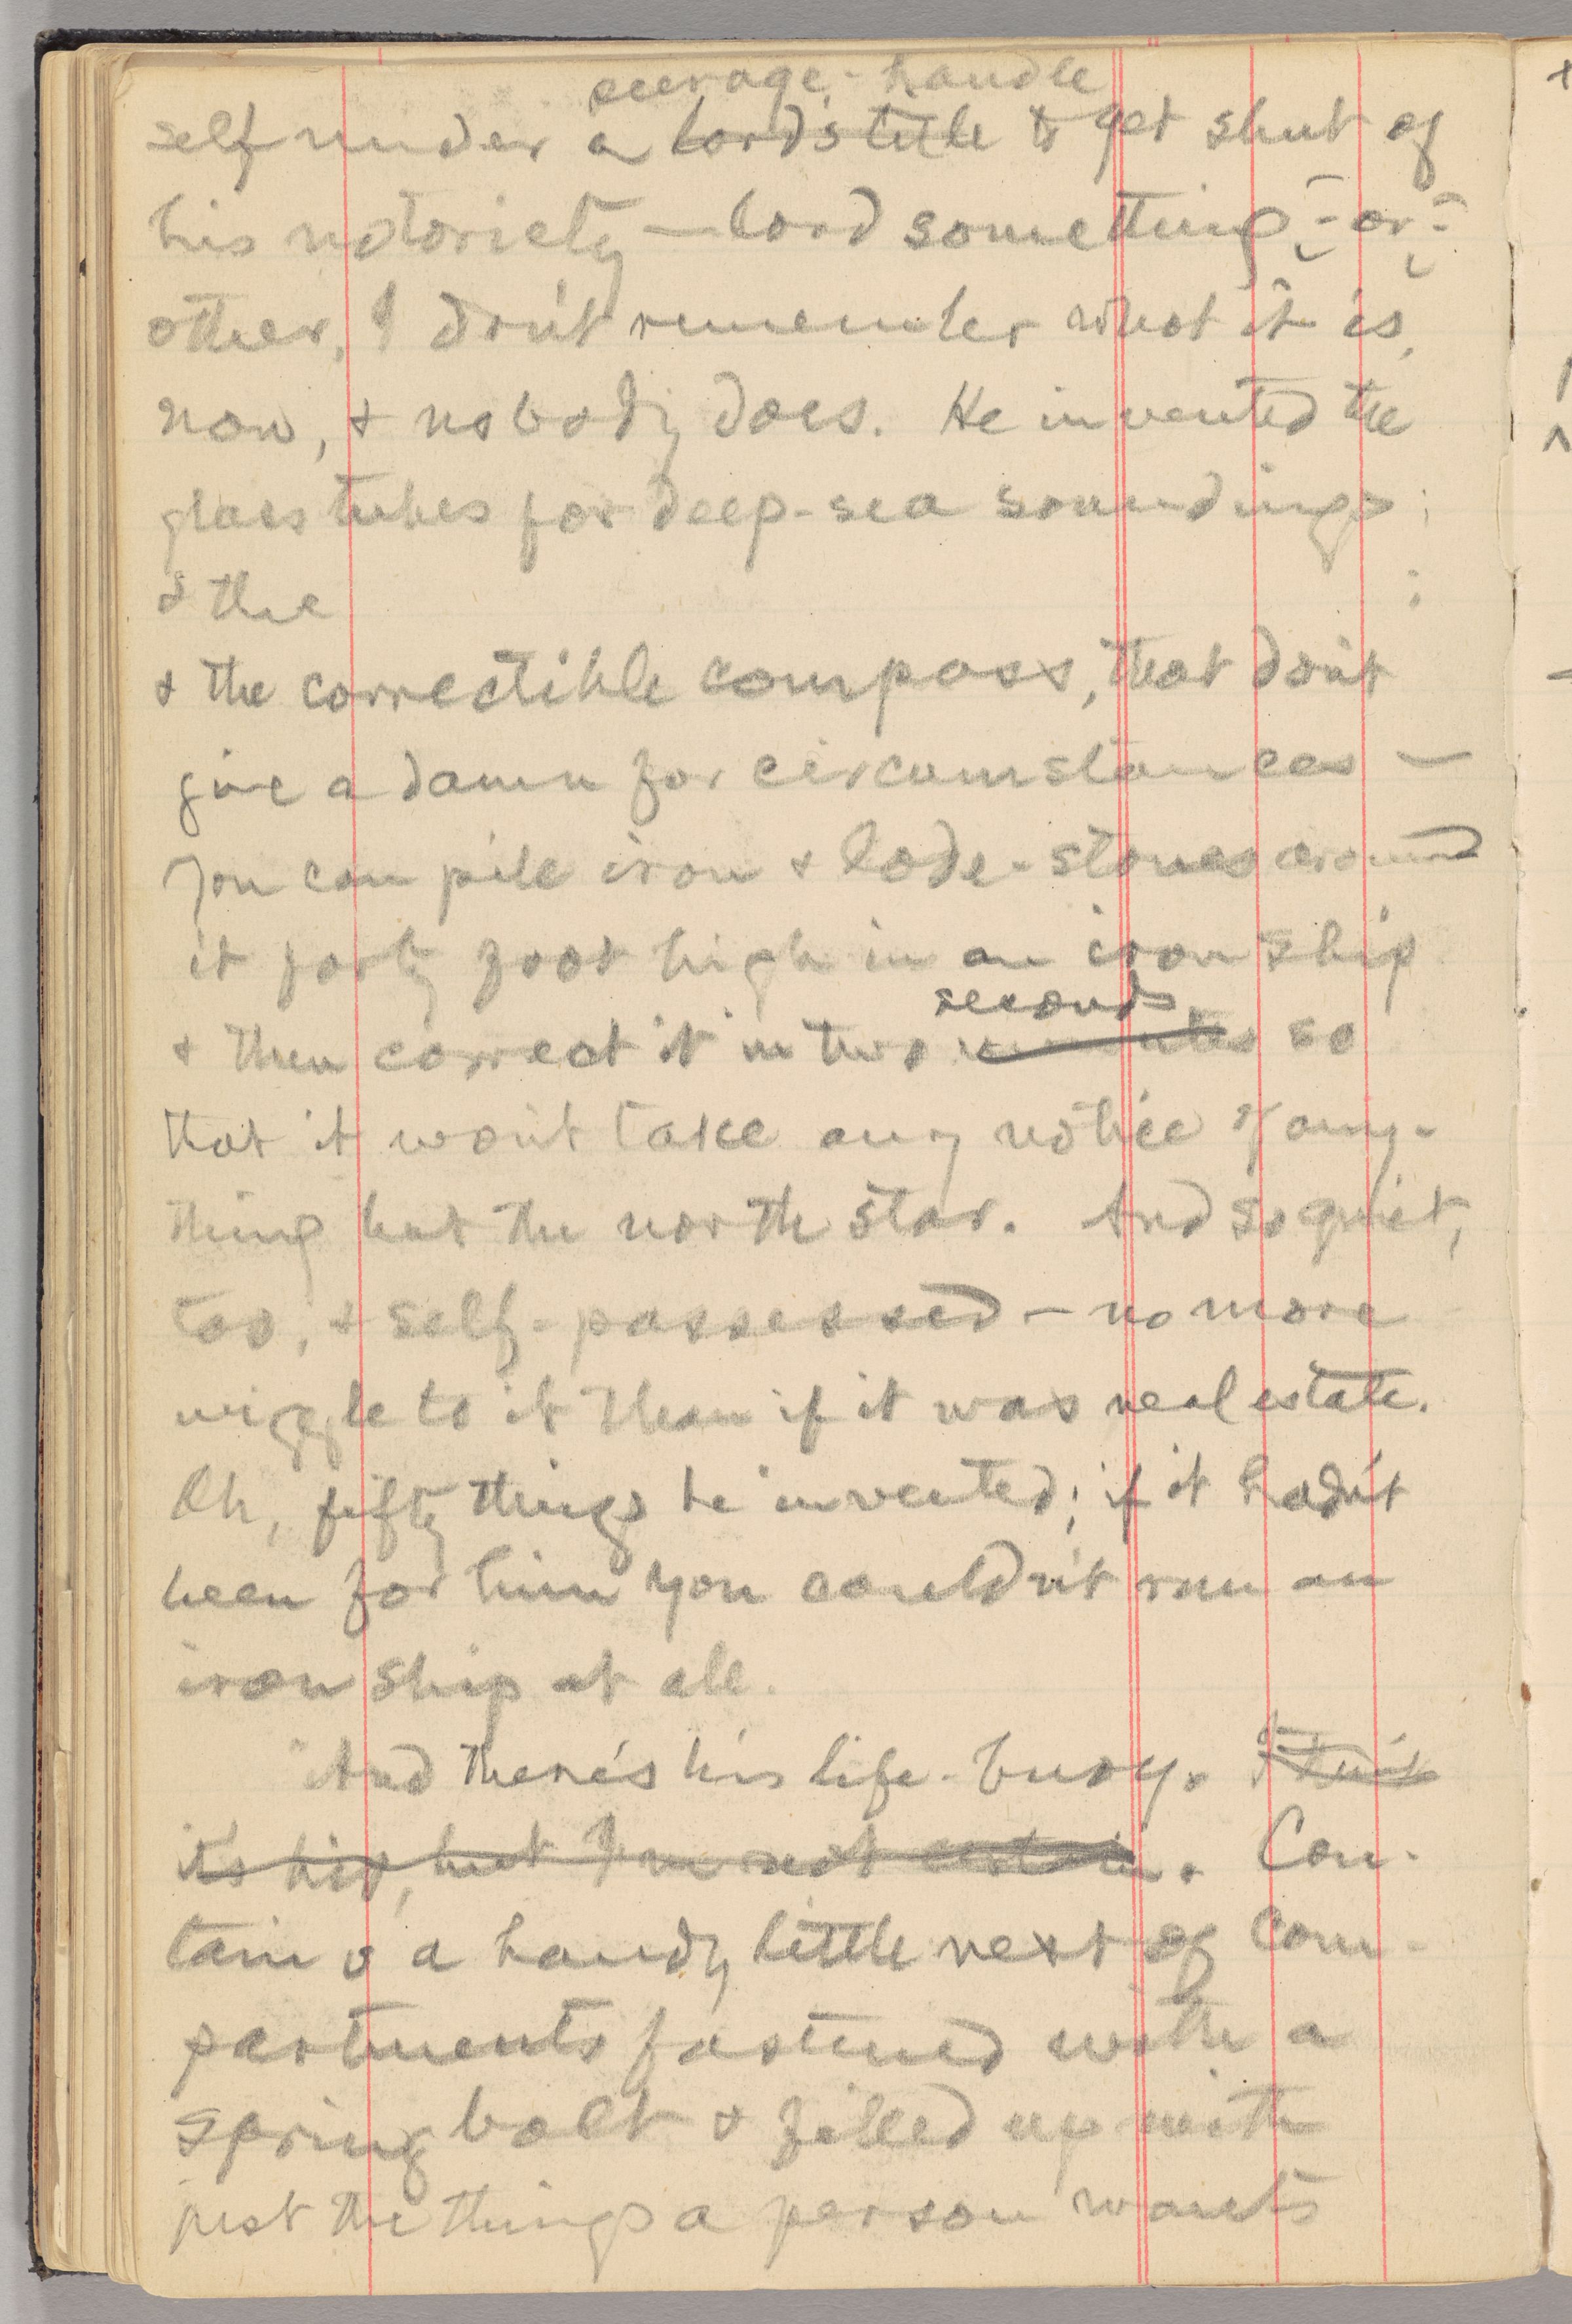 peerage-handle
self under a lord's title to get shut of
his notoriety — lord something-or-
other, I don't remember what it is,
now, & nobody does. He invented the
glass tubes for deep-sea soundings;
& the
& the correctible compass, that don't
give a damn for circumstances —
you can pile iron & lode-stones around
it forty foot high in an iron ship
seconds
& then correct it in two minutes so
that it won't take any notice of any-
thing but the north star. And so quiet,
too, & self-possessed — no more
wiggle to it than if it was real estate.
Oh, fifty things he invented; if it hadn't
been for him you couldn't run an
iron ship at all.
"And there's his life-buoy. I think
it's his, but I'm not certain. Con-
tains a handy little nest of com-
partments fastened with a
spring bolt & filled up with
just the things a person wants